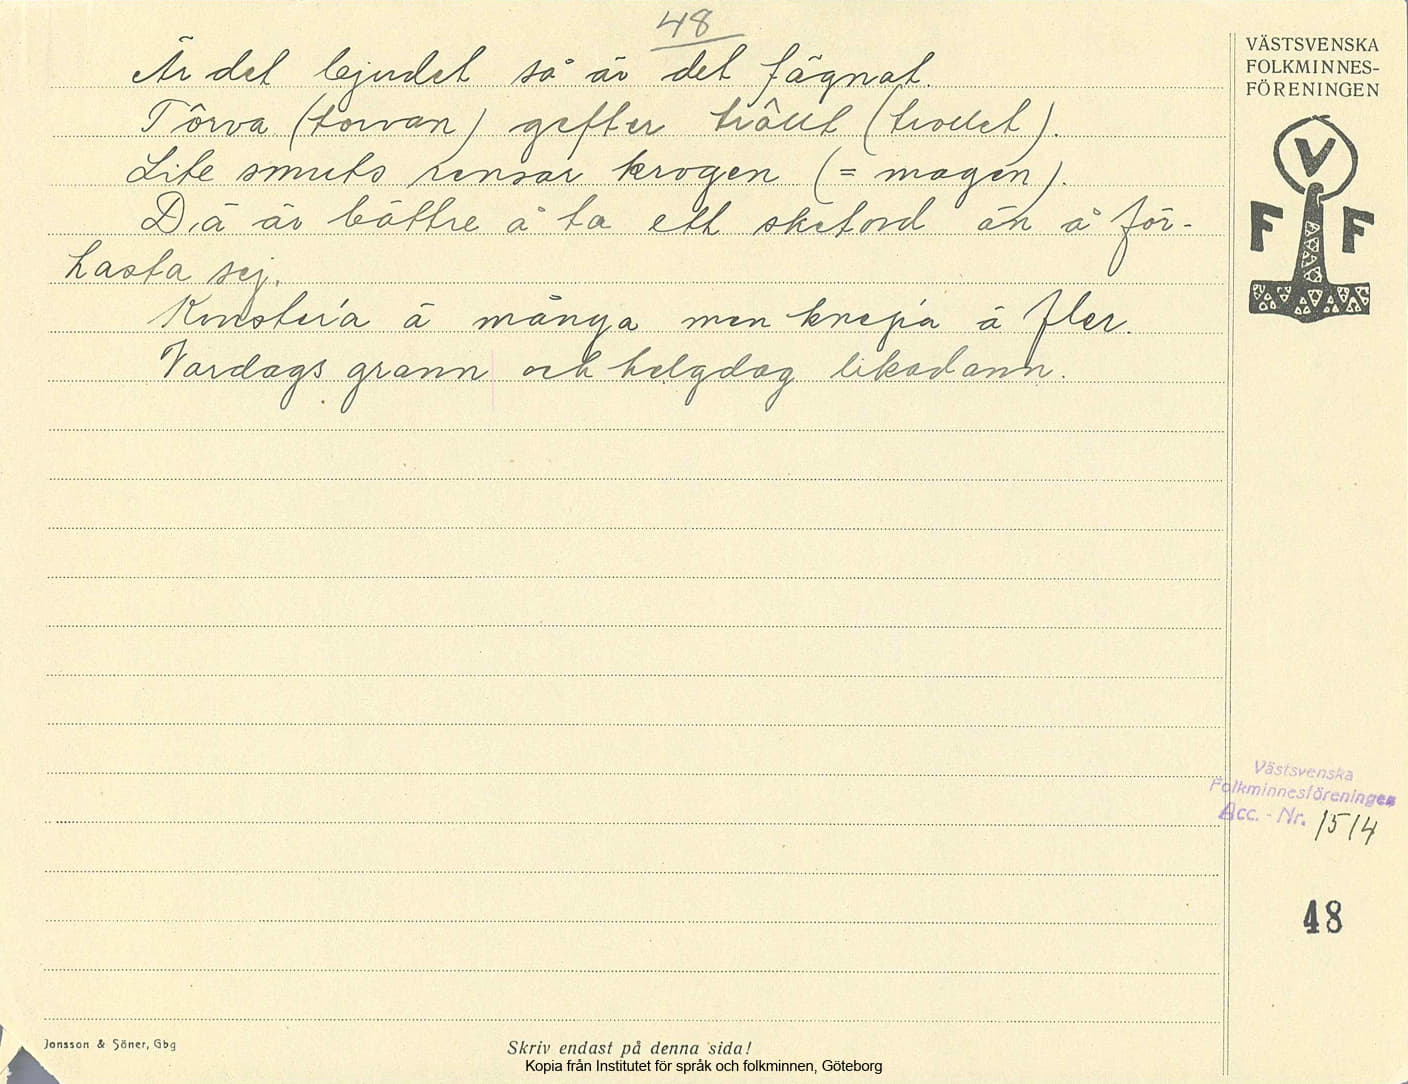 48
Är det bjudet så är det fägnat.
Tôrva (torvan) gifter trôllt (trollet).
Lite smuts rensar krogen (= magen).
D,ä är bättre å ta ett sketord än å för-
hasta sej.
Konster'a ä många men knep'a ä fler.
Vardags grann och helgdag likadann.
VÄSTSVENSKA
FOLKMINNES-
FÖRENINGEN
V
F F
Västsvenska
Folkminnesföreningen
Acc. - Nr. 1514
48
Jonsson & Söner, Gbg
Skriv endast på denna sida!
Kopia från Institutet för språk och folkminnen, Göteborg